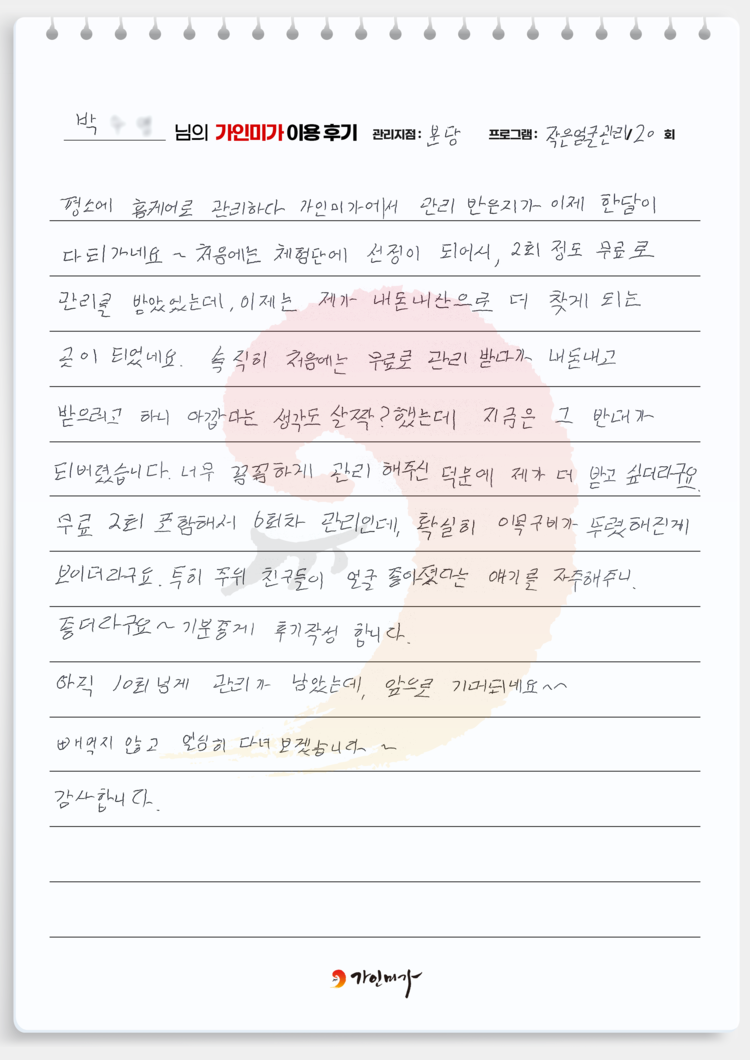 박 님의 가인미가 이용 후기 관리지점 : 분당 프로그램 : 작은얼굴관리 20 회
평소에 홈케어로 관리하다 가인미가에서 관리 받은지가 이제 한달이
다 되가네요 ~ 처음에는 체험단에 선정이 되어서, 2회 정도 무료로
관리를 받았었는데, 이제는 제가 내돈내산으로 더 찾게 되는
곳이 되었네요. 솔직히 처음에는 무료로 관리 받다가 내돈내고
받으려고 하니 아깝다는 생각도 살짝? 했는데 지금은 그 반대가
되버렸습니다. 너무 꼼꼼하게 관리 해주신 덕분에 제가 더 받고 싶더라구요.
무료 2회 포함해서 6회차 관리인데, 확실히 이목구비가 뚜렷해진게
보이더라구요. 특히 주위 친구들이 얼굴 좋아졌다는 얘기를 자주해주니.
좋더라구요~ 기분좋게 후기작성 합니다.
아직 10회 넘게 관리가 남았는데, 앞으로 기대되네요^^
빼먹지 않고 열심히 다녀 보겠습니다 ~
감사합니다.
가인미가